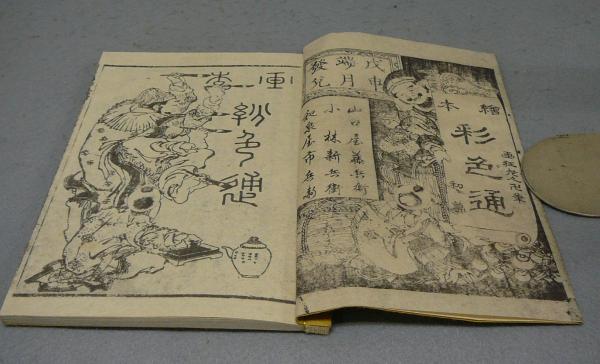 画狂老人卍筆
繪本
彩色通
初編
戊申
端月
發兌
山口屋藤兵衛
小林新兵衛
和泉屋市兵衛
画本
彩色通